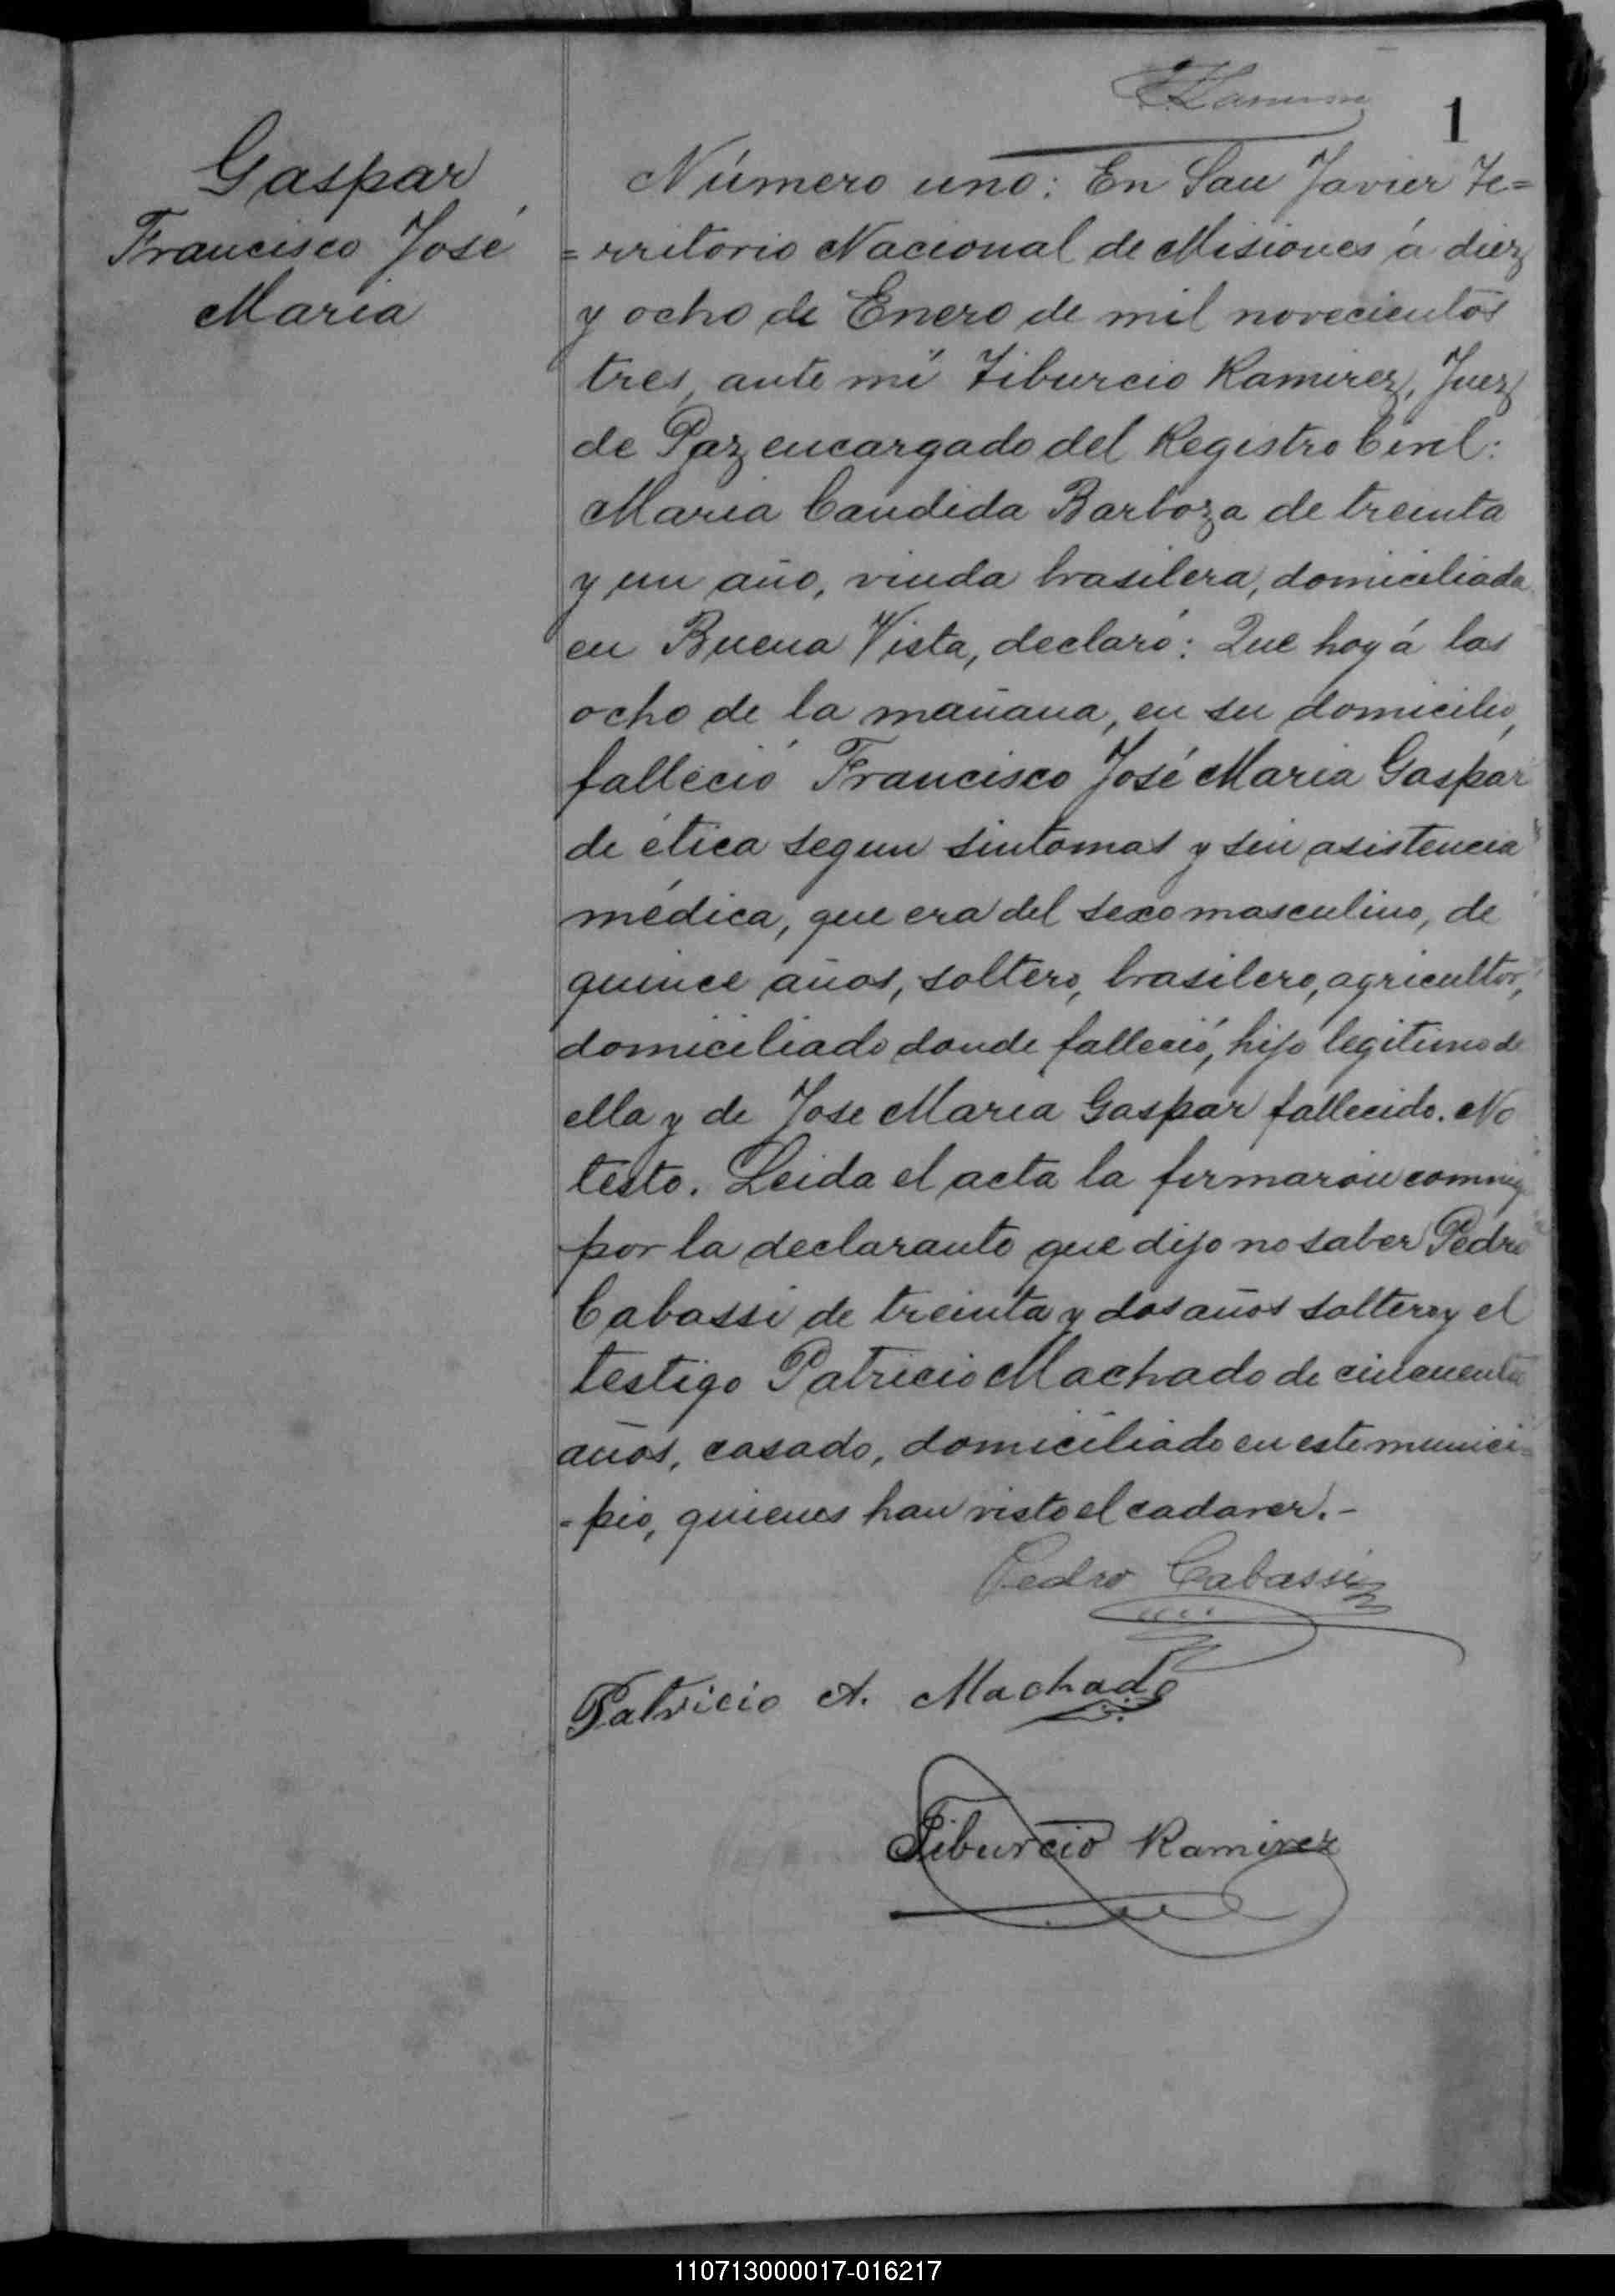 1
Gaspar
Francisco José
Maria
Número uno: En San Javier Te=
=rritorio Nacional de Misiones á diez
y ocho de Enero de mil novecientos
tres, ante mi Tiburcio Ramirez, Juez
de Paz encargado del Registro Civil:
Maria Candida Barboza de treinta
y un año, viuda brasilera, domiciliada
en Buena Vista, declaró: Que hoy á las
ocho de la mañana, en su domicilio,
falleció Francisco José Maria Gaspar
de ética segun sintomas y sin asistencia
médica, que era del sexo masculino, de
quince años, soltero, brasilero, agricultor,
domiciliado donde falleció, hijo legitimo de
ella y de Jose Maria Gaspar fallecido. No
testo. Leida el acta la firmaron conmigo
por la declarante que dijo no saber Pedro
Cabassi de treinta y dos años soltero y el
testigo Patricio Machado de cincuenta
años, casado, domiciliado en este munici=
-pio, quienes han visto el cadaver.-
Pedro Cabassi
Patricio A. Machado
Tiburcio Ramirez
110713000017-016217